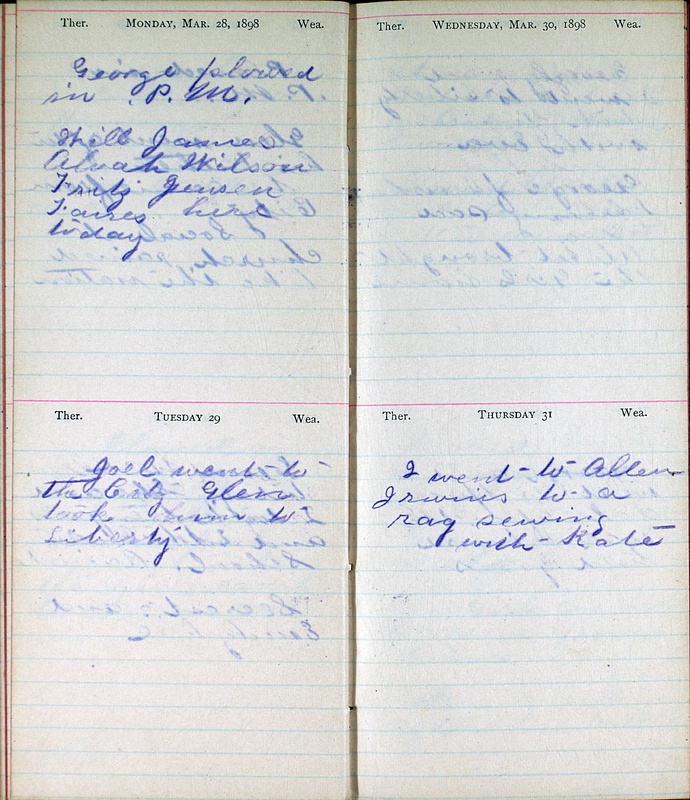 Ther. MONDAY, MAR. 28, 1898 Wea.
George plowed
in P.M.
Will James
Alvah Wilson
Fritz Jensen
Fares here
today
Ther. TUESDAY 29 Wea.
Joel went to
the City Glen
took him to
Liberty
Ther. WEDNESDAY, MAR. 30, 1898 Wea.
Ther. THURSDAY 31 Wea.
I went to Allen
Irwins to a
rag sewing
with Kate